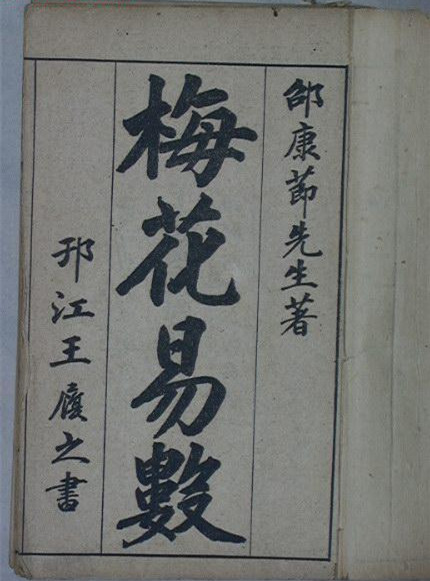 邵康節先生著
梅花易數
邗江王履之書